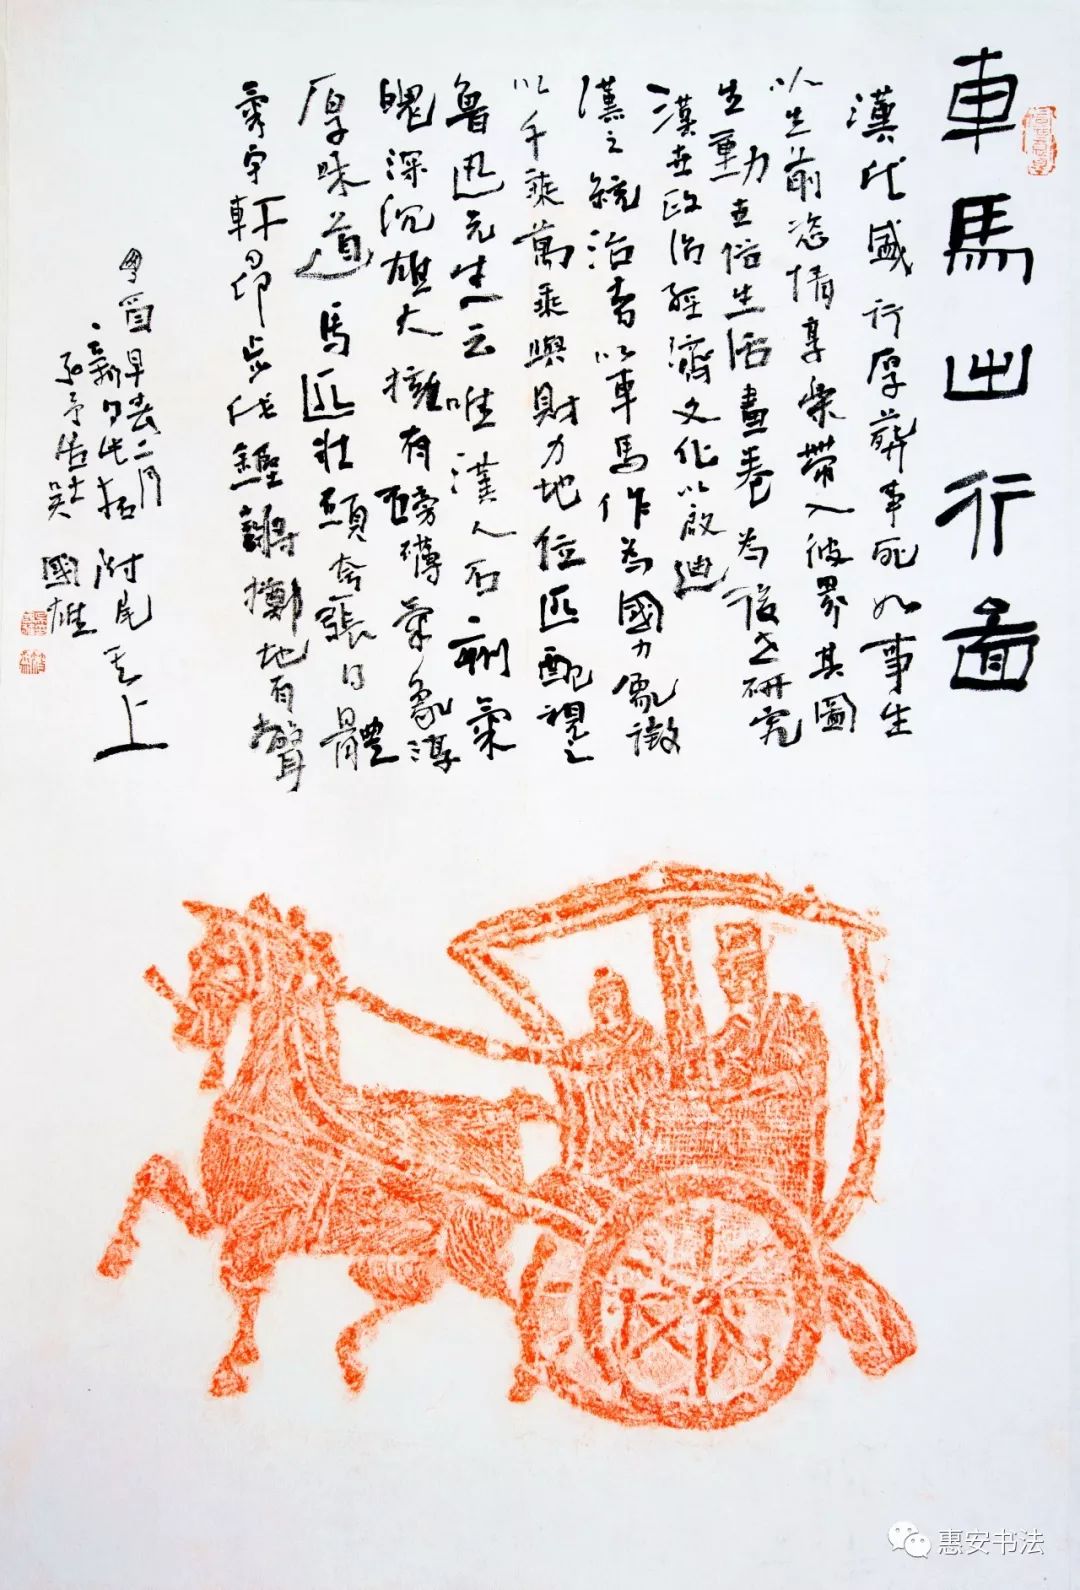 車馬出行圖
漢代盛行厚葬事死如事生
以生前恣情享樂帶入彼界其圖
生動世俗生活畫卷為後世研究
漢世政治經濟文化以啟迪
漢之統治者以車馬作為國力象徵
以千乘萬乘與財力地位匹配視之
魯迅先生云唯漢人石刻氣
魄深沉雄大擁有磅礴氣象淳
厚味道馬匹壯碩夸張日體
宇軒昂步伐鏗鏘擲地有聲
酉早春二月
附尾上
吳國雄
惠安书法